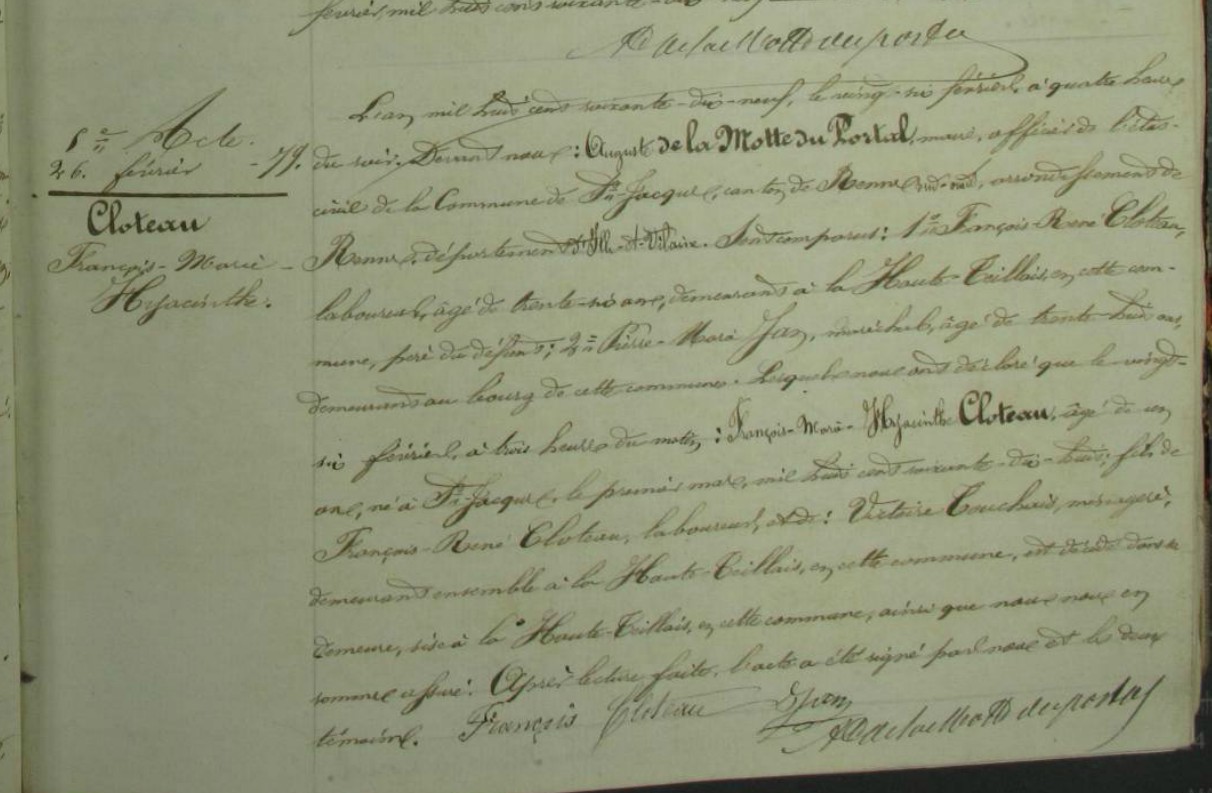 février, mil huit cent soixante-dix
A de la Motte du portal
L'an mil huit cent soixante-dix-neuf, le vingt-six février, à quatre heures
6e Acte.
26. février -79.
du soir. Devant nous : Auguste de la Motte du Portal, maire, officier de l'état-
civil de la Commune de St-Jacques, canton de Rennes sud-ouest, arrondissement de
Cloteau
François-Marie-
Hyacinthe.
Rennes, département d'Ille-et-Vilaine. Sont comparus : 1° François-René Cloteau,
laboureur, âgé de trente-six ans, demeurant à la Haute-Teillais, en cette com-
mune, père du défunt ; 2° Pierre-Marie Jan, maréchal, âgé de trente-huit ans,
demeurant au bourg de cette commune. Lesquels nous ont déclaré que le vingt-
six février, à trois heures du matin, : François-Marie-Hyacinthe Cloteau, âgé de un
ans, né à St-Jacques, le premier mars, mil huit cent soixante-dix-huit, fils de
François-René Cloteau, laboureur, et de : Victoire Touchais, ménagère,
demeurant ensemble à la Haute-Teillais, en cette commune, est décédé dans sa
demeure, sise à la Haute-Teillais, en cette commune, ainsi que nous nous en
sommes assuré. Après lecture faite, l'acte a été signé par nous et les deux
témoins. François Cloteau Jan
A de la Motte du portal